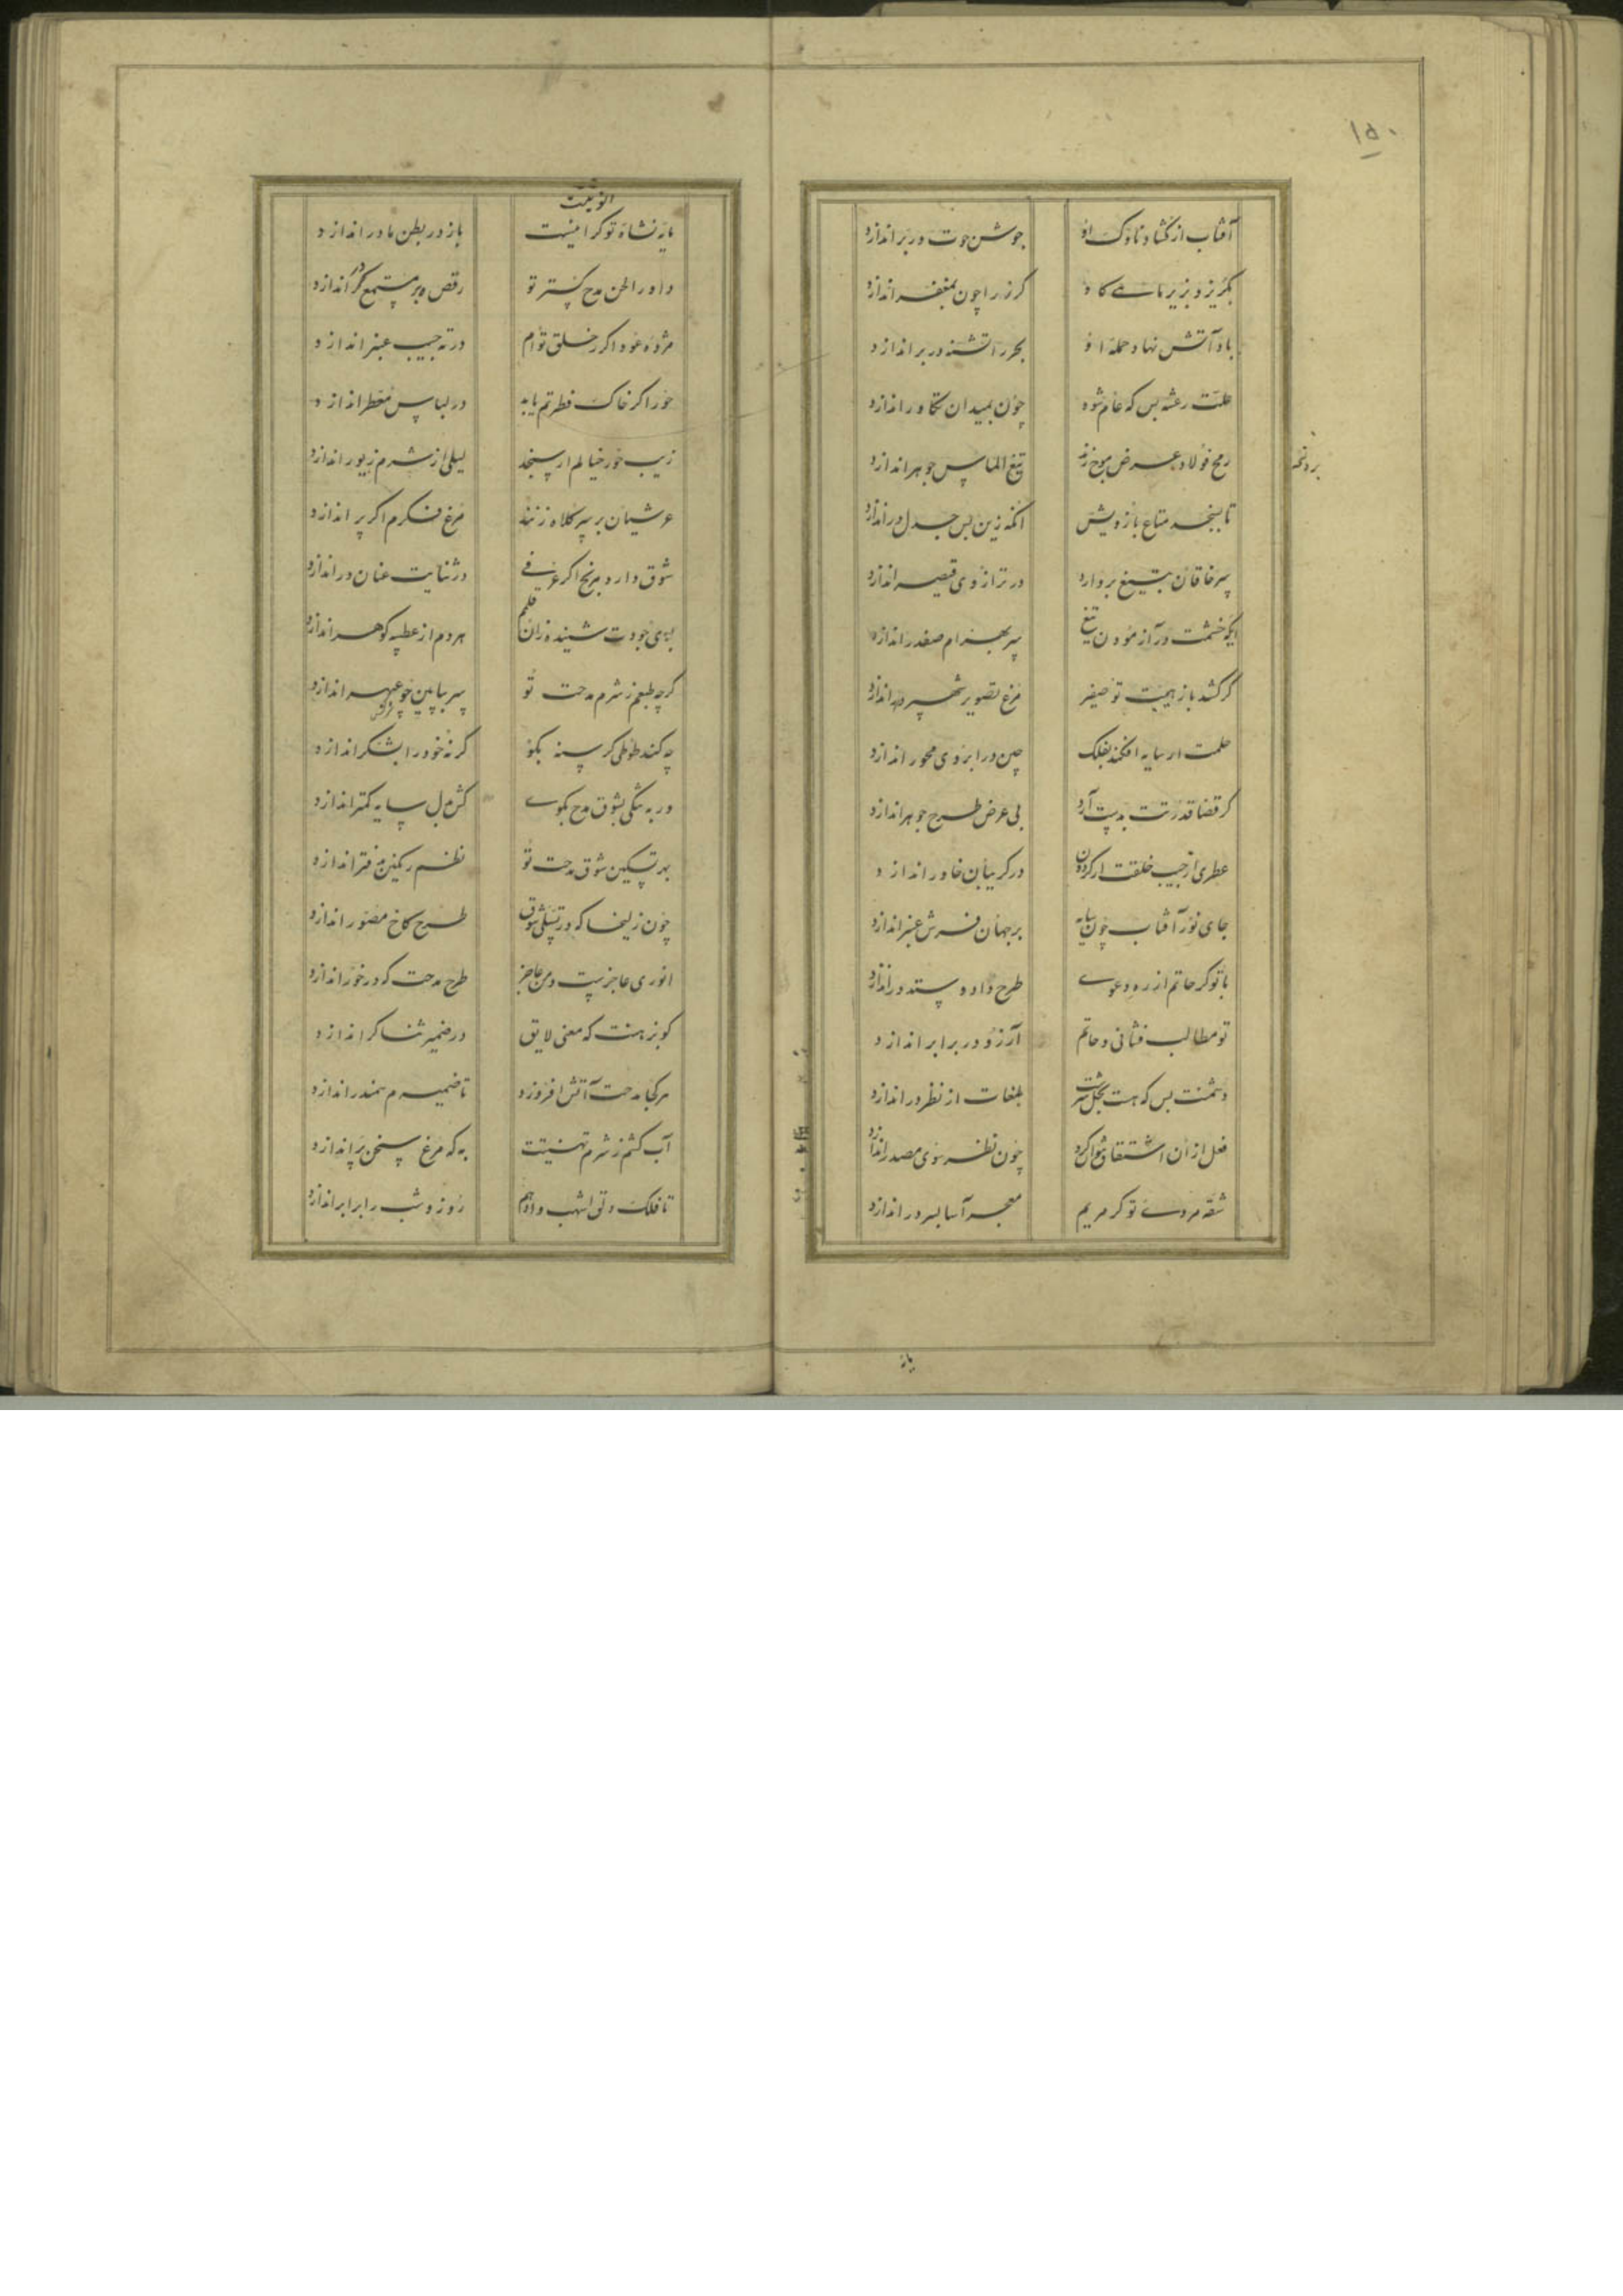 ۱۵۰
آفتاب از کشاد ناوک او
جوشن حوت در بر اندازد
بگریزد بزیر ماهی گاو
گرز را چون بمغفر اندازد
باد آتش نهاد حمله او
بحر را تشنه در بر اندازد
علت رعشه بس که عام شود
چون بمیدان تکاور اندازد
رمح فولاد عرض موج زند
تیغ الماس جوهر اندازد
تا بسنجد متاع بازویش
آنکه زین بس جدل در اندازد
سر خاقان بتیغ بردارد
در ترازوی قیصر اندازد
ایکه خشمت در آزمودن تیغ
سر بهرام صفدر اندازد
گر کشد باز هیبت تو صفیر
مرغ تصویر شهپر اندازد
حلمت ار سایه افکند بفلک
چین در ابروی محور اندازد
گر قضا قدرتت بدست آرد
بی عرض طرح جوهر اندازد
عطری از جیب خلقت ار گردون
در گریبان خاور اندازد
جای نور آفتاب چون سایه
بر جهان فرش عنبر اندازد
با تو گر حاتم از ره دعوی
طرح داد و ستد در اندازد
تو مطالب فشانی و حاتم
آرزو در برابر اندازد
دشمنت بس که هست بخل سرشت
بلغات از نظر در اندازد
فعل از آن اشتقاق نتوان کرد
چون نظر سوی مصدر اندازد
شقه مردی تو گر مریم
معجر آسا بسر در اندازد
باز
انوثیت
مایه نشاه تو گر اینست
باز در بطن مادر اندازد
داور الحن مدح گستر تو
رقص در مستمع گر اندازد
مژده عود اگر ز خلق توام
در ته جیب عنبر اندازد
حور اگر خاک فطرتم یابد
در لباس معطر اندازد
زیب حور خیالم ار سنجد
لیلی از شرم زیور اندازد
عرشیان بر سر کلاه زنند
مرغ فکرم اگر پر اندازد
شوق دارد مرنج اگر عرفی
در ثنایت عنان در اندازد
بوی جودت شنیده زان قلمم
هر دم از عطسه گوهر اندازد
گرچه طبعم ز شرم مدحت تو
سر بپایین چو عبهر اندازد
چه کند طوطی گرسنه بگو
گر نه خود را بشکر اندازد
بهر تسکین شوق مدحت تو
نظم رنگین بدفتر اندازد
چون زلیخا که در تسلی شوق
طرح کاخ مصور اندازد
انوری عاجزست و من عاجز
طرح مدحت که در خور اندازد
کو نزهت که معنی لایق
در ضمیر ثناگر اندازد
هر کجا مدحت آتش افروزد
تا ضمیرم سمندر اندازد
آب گشتم ز شرم تهنیتت
به که مرغ سخن پر اندازد
تا فلک دلق اشهب و ادهم
روز و شب را برابر اندازد